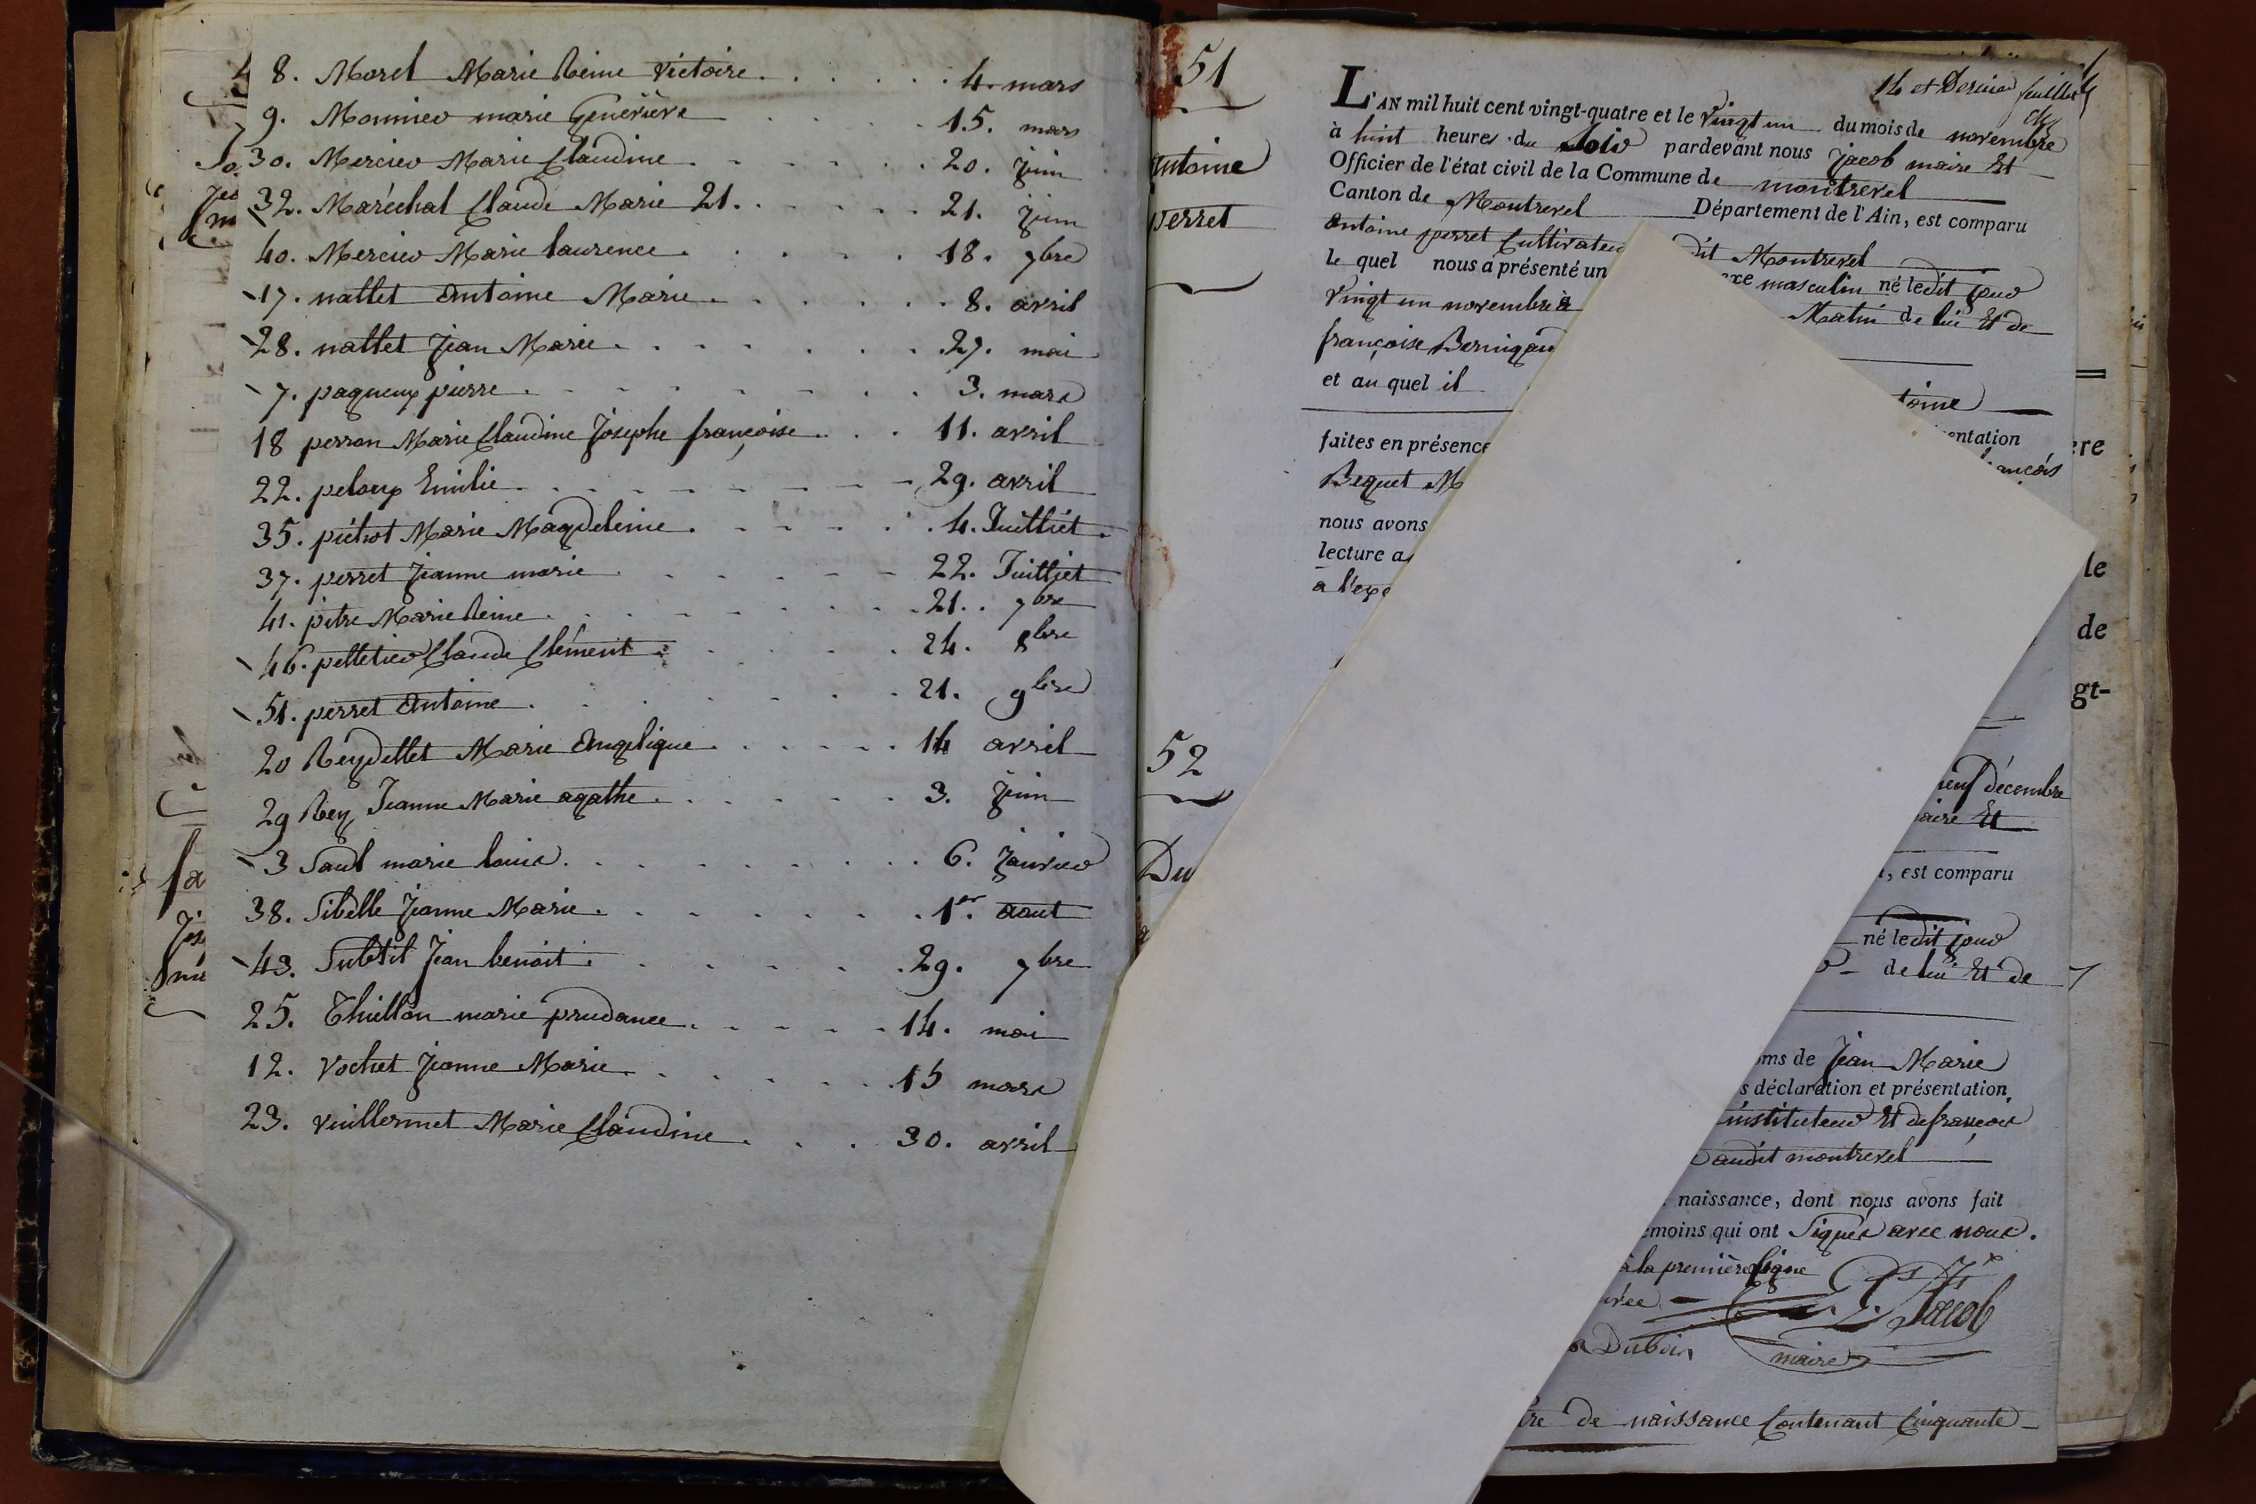 8. Morel Marie Reine Victoire. 4. mars
9. Monnier marie Genevieve 15. mars
30. Mercier Marie Claudine. 20. juin
32. Maréchal Claude Marie 21. 21. juin
40. Mercier Marie laurence. 18. 7bre
17. nallet Antoine Marie. 8. avril
28. nallet Jean Marie. 27. mai
7. paqueux pierre. 3. mars
18 perron Marie Claudine Josephe françoise. 11. avril
22. peloux Emilie. 29. avril
35. Marie Magdeleine. 4. Juilliet
37. perret Jeanne marie 22. Juilliet
41. pitre Marie Reine. 21. 7bre
46. pelletier Claude Clément. 24. 8bre
51. perret Antoine. 21. 9bre
20 Reydellet Marie Angelique. 14 avril
29 Rey Jeanne Marie agathe. 3. juin
3 Saul marie louis. 6. janvier
38. Sibelle Jeanne Marie. 1er. aout
43. Subtil Jean benoit. 29. 7bre
25. Thiellon marie prudance. 14. mai
12. Vochet Jeanne Marie. 15 mars
23. Vuillermet Marie Claudine. 30. avril
51
Antoine
perret
52
Du
14 et Dernier feuillet
L'AN mil huit cent vingt-quatre et le Vingt un du mois de novembre
à huit heures du Soir pardevant nous Jacob maire Et
Officier de l'état civil de la Commune de montrevel
Canton de Montrevel Département de l'Ain, est comparu
Antoine perret Cultivateur dit Montrevel
le quel nous a présenté un exe masculin né ledit jour
Vingt un novembre à Matin de lui Et de
françoise Bernigaud
et au quel il toine
faites en présence entation
Bequet M ançois
nous avons
lecture a
a l'exp
ere
le
de
gt-
neuf décembre
aire Et
, est comparu
né ledit jour
de lui Et de
oms de Jean Marie
s déclaration et présentation,
instituteur Et de françois
audit montrevel
naissance, dont nous avons fait
émoins qui ont Signés avec nous.
à la première ligne
Jacob
Dubois
maire
tre de naissance Contenant Cinquante